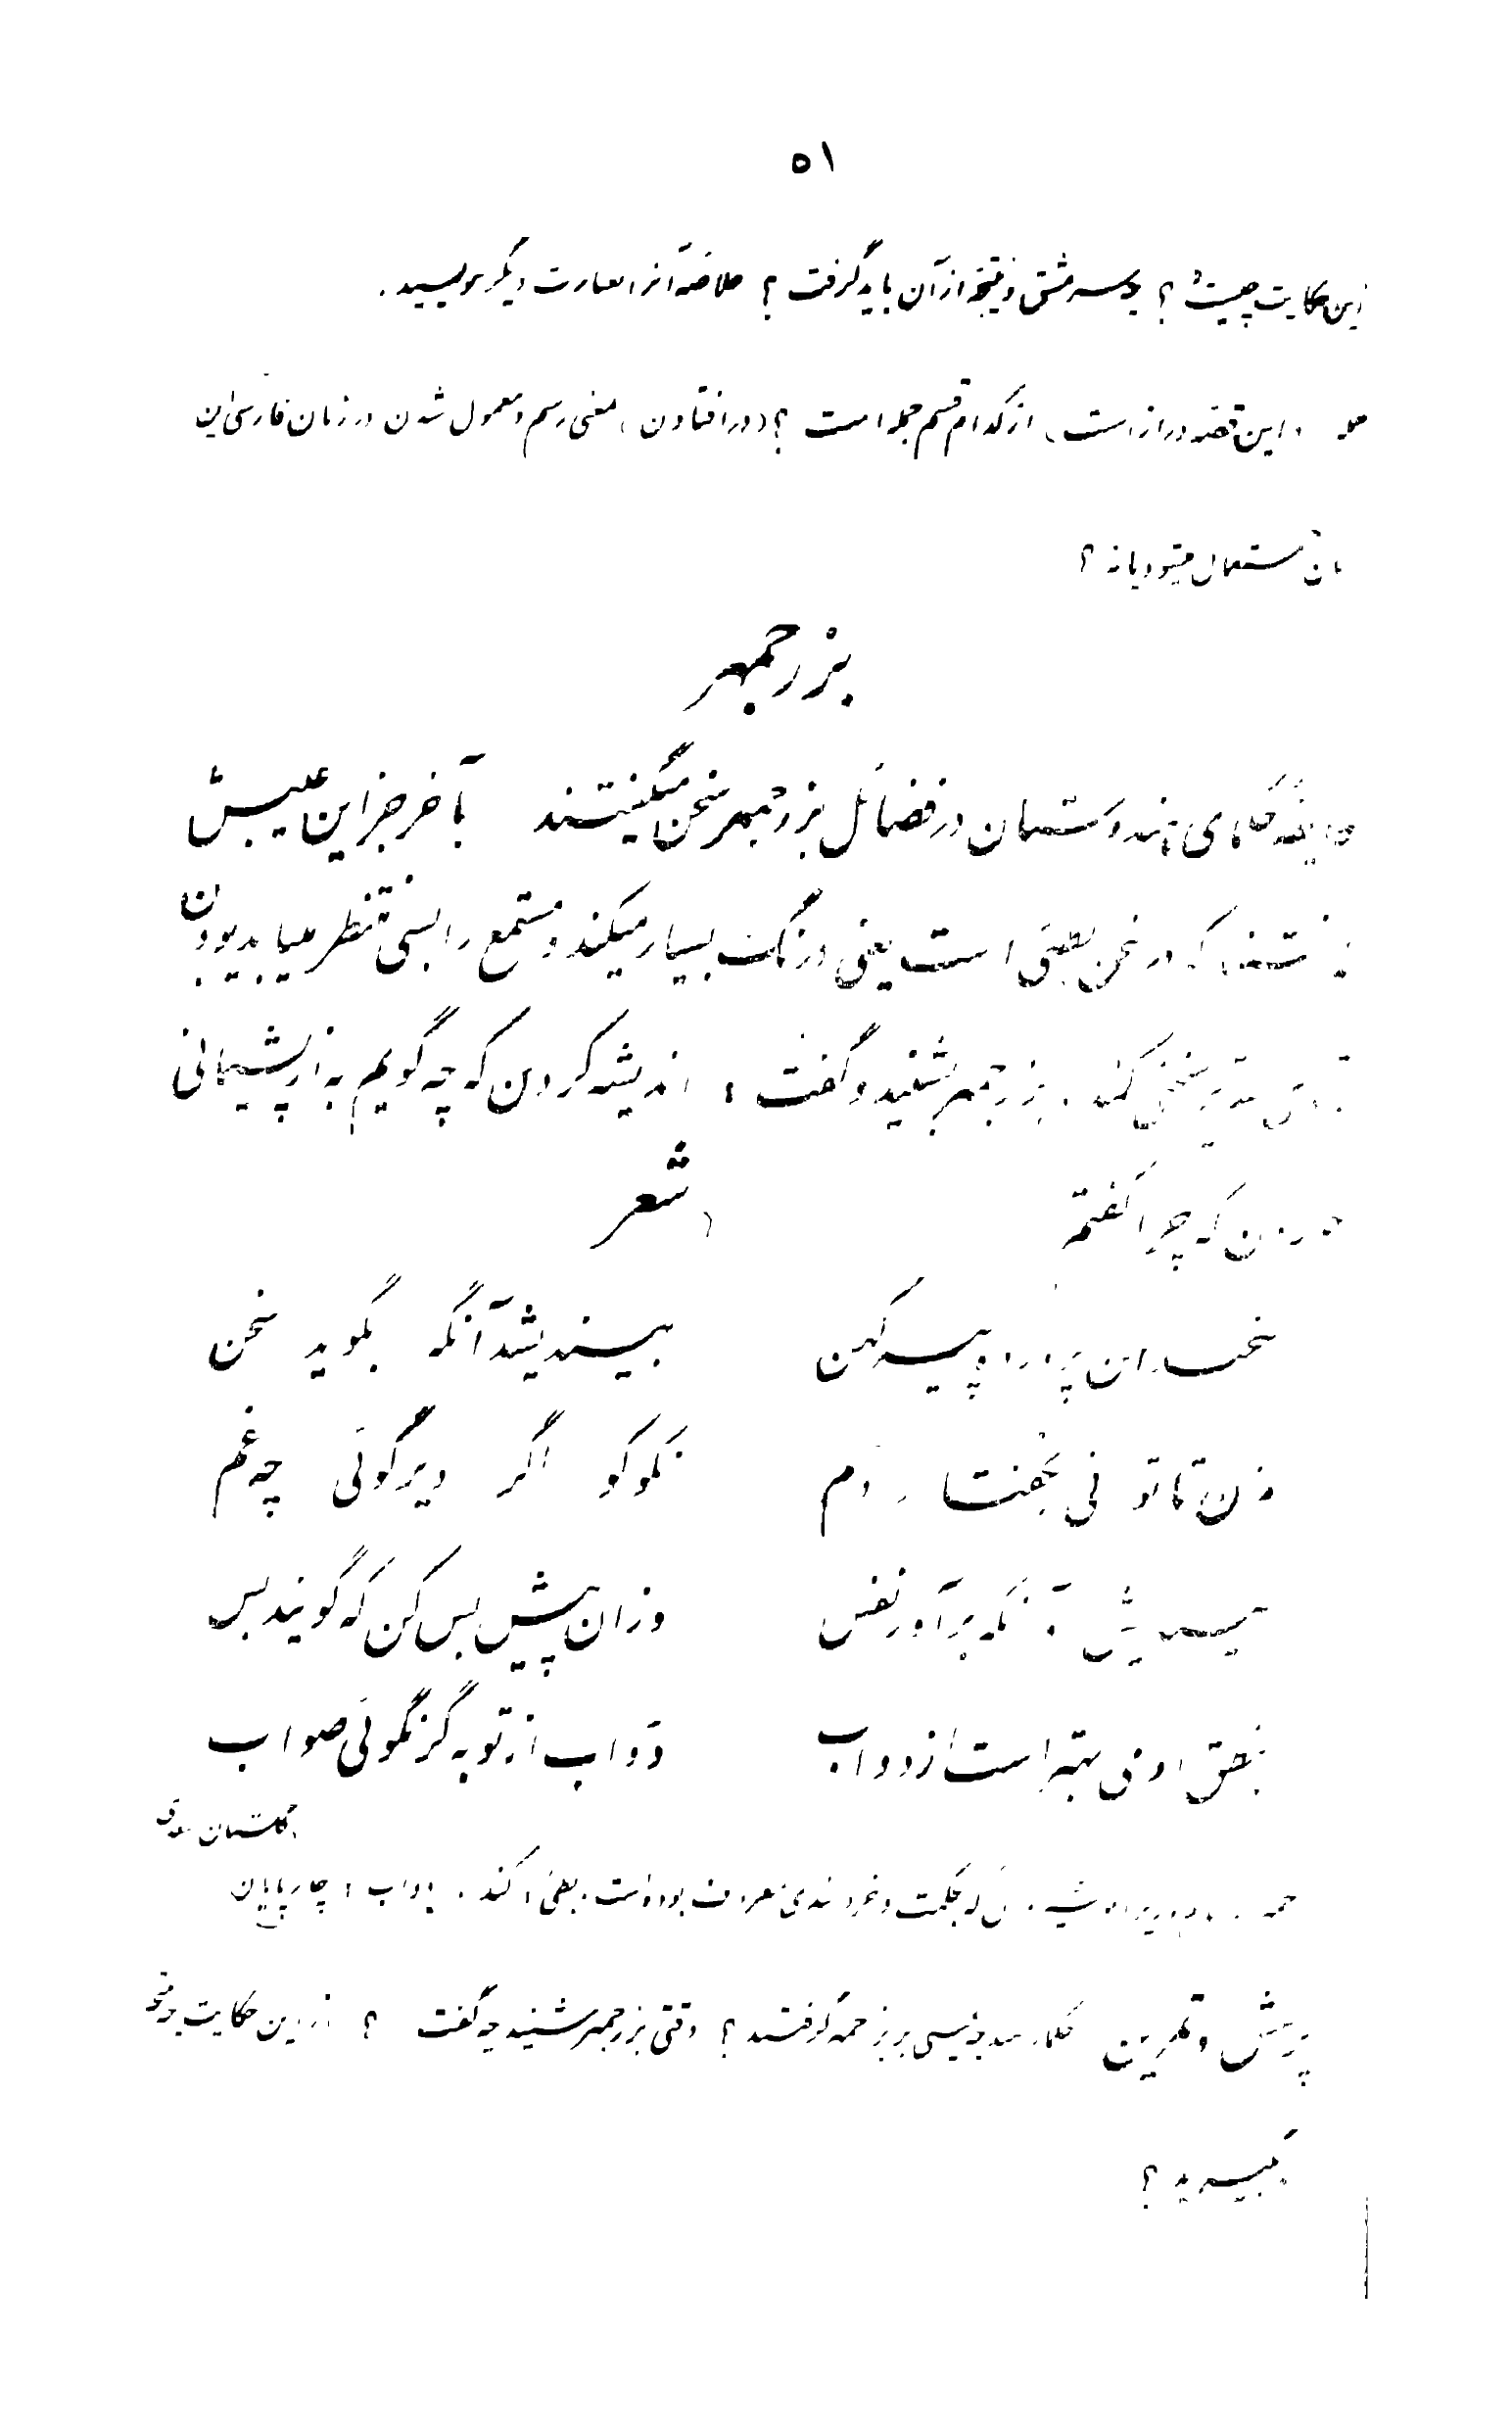 ۵۱
این حکایت چیست؟ چه سرمشق و نتیجه از آن باید گرفت؟ خلاصه آنرا بعبارت دیگر بنویسید.
جمله «این قصه دراز است» از کدام قسم جمله است؟ (در افتادن) بمعنی رسم و معمول شدن در زبان فارسی این
زمان استعمال میشود یا نه؟
بزرجمهر
طایفه حکمای هندوستان در فضائل بزرجمهر سخن میگفتند بآخر جز این عیبش
ندانستند که در سخن بطیئ است یعنی درنگ بسیار میکند و مستمع را بسی منتظر میباید بودن
تا وی تقریر سخنی کند. بزرجمهر بشنید و گفت: اندیشه کردن که چه گویم به از پشیمانی
خوردن که چرا گفتم
شعر
سخندان پرورده پیر کهن بیندیشد آنگه بگوید سخن
مزن تا توانی بگفتار دم نکو گو اگر دیر گوئی چه غم
بیندیش و آنگه برآور نفس وزان پیش بس کن که گویند بس
بنطق آدمی بهتر است از دواب دواب از تو به گر نگوئی صواب
گلستان سعدی
که بحکمت و خردمندی معروف بوده است. بطیئ: کند. دواب: چارپایان
پرسش و تمرین حکماء هند چه عیبی بر بزرجمهر گرفتند؟ وقتی بزرجمهر شنید چه گفت؟ از این حکایت چه نتیجه
میگیرید؟